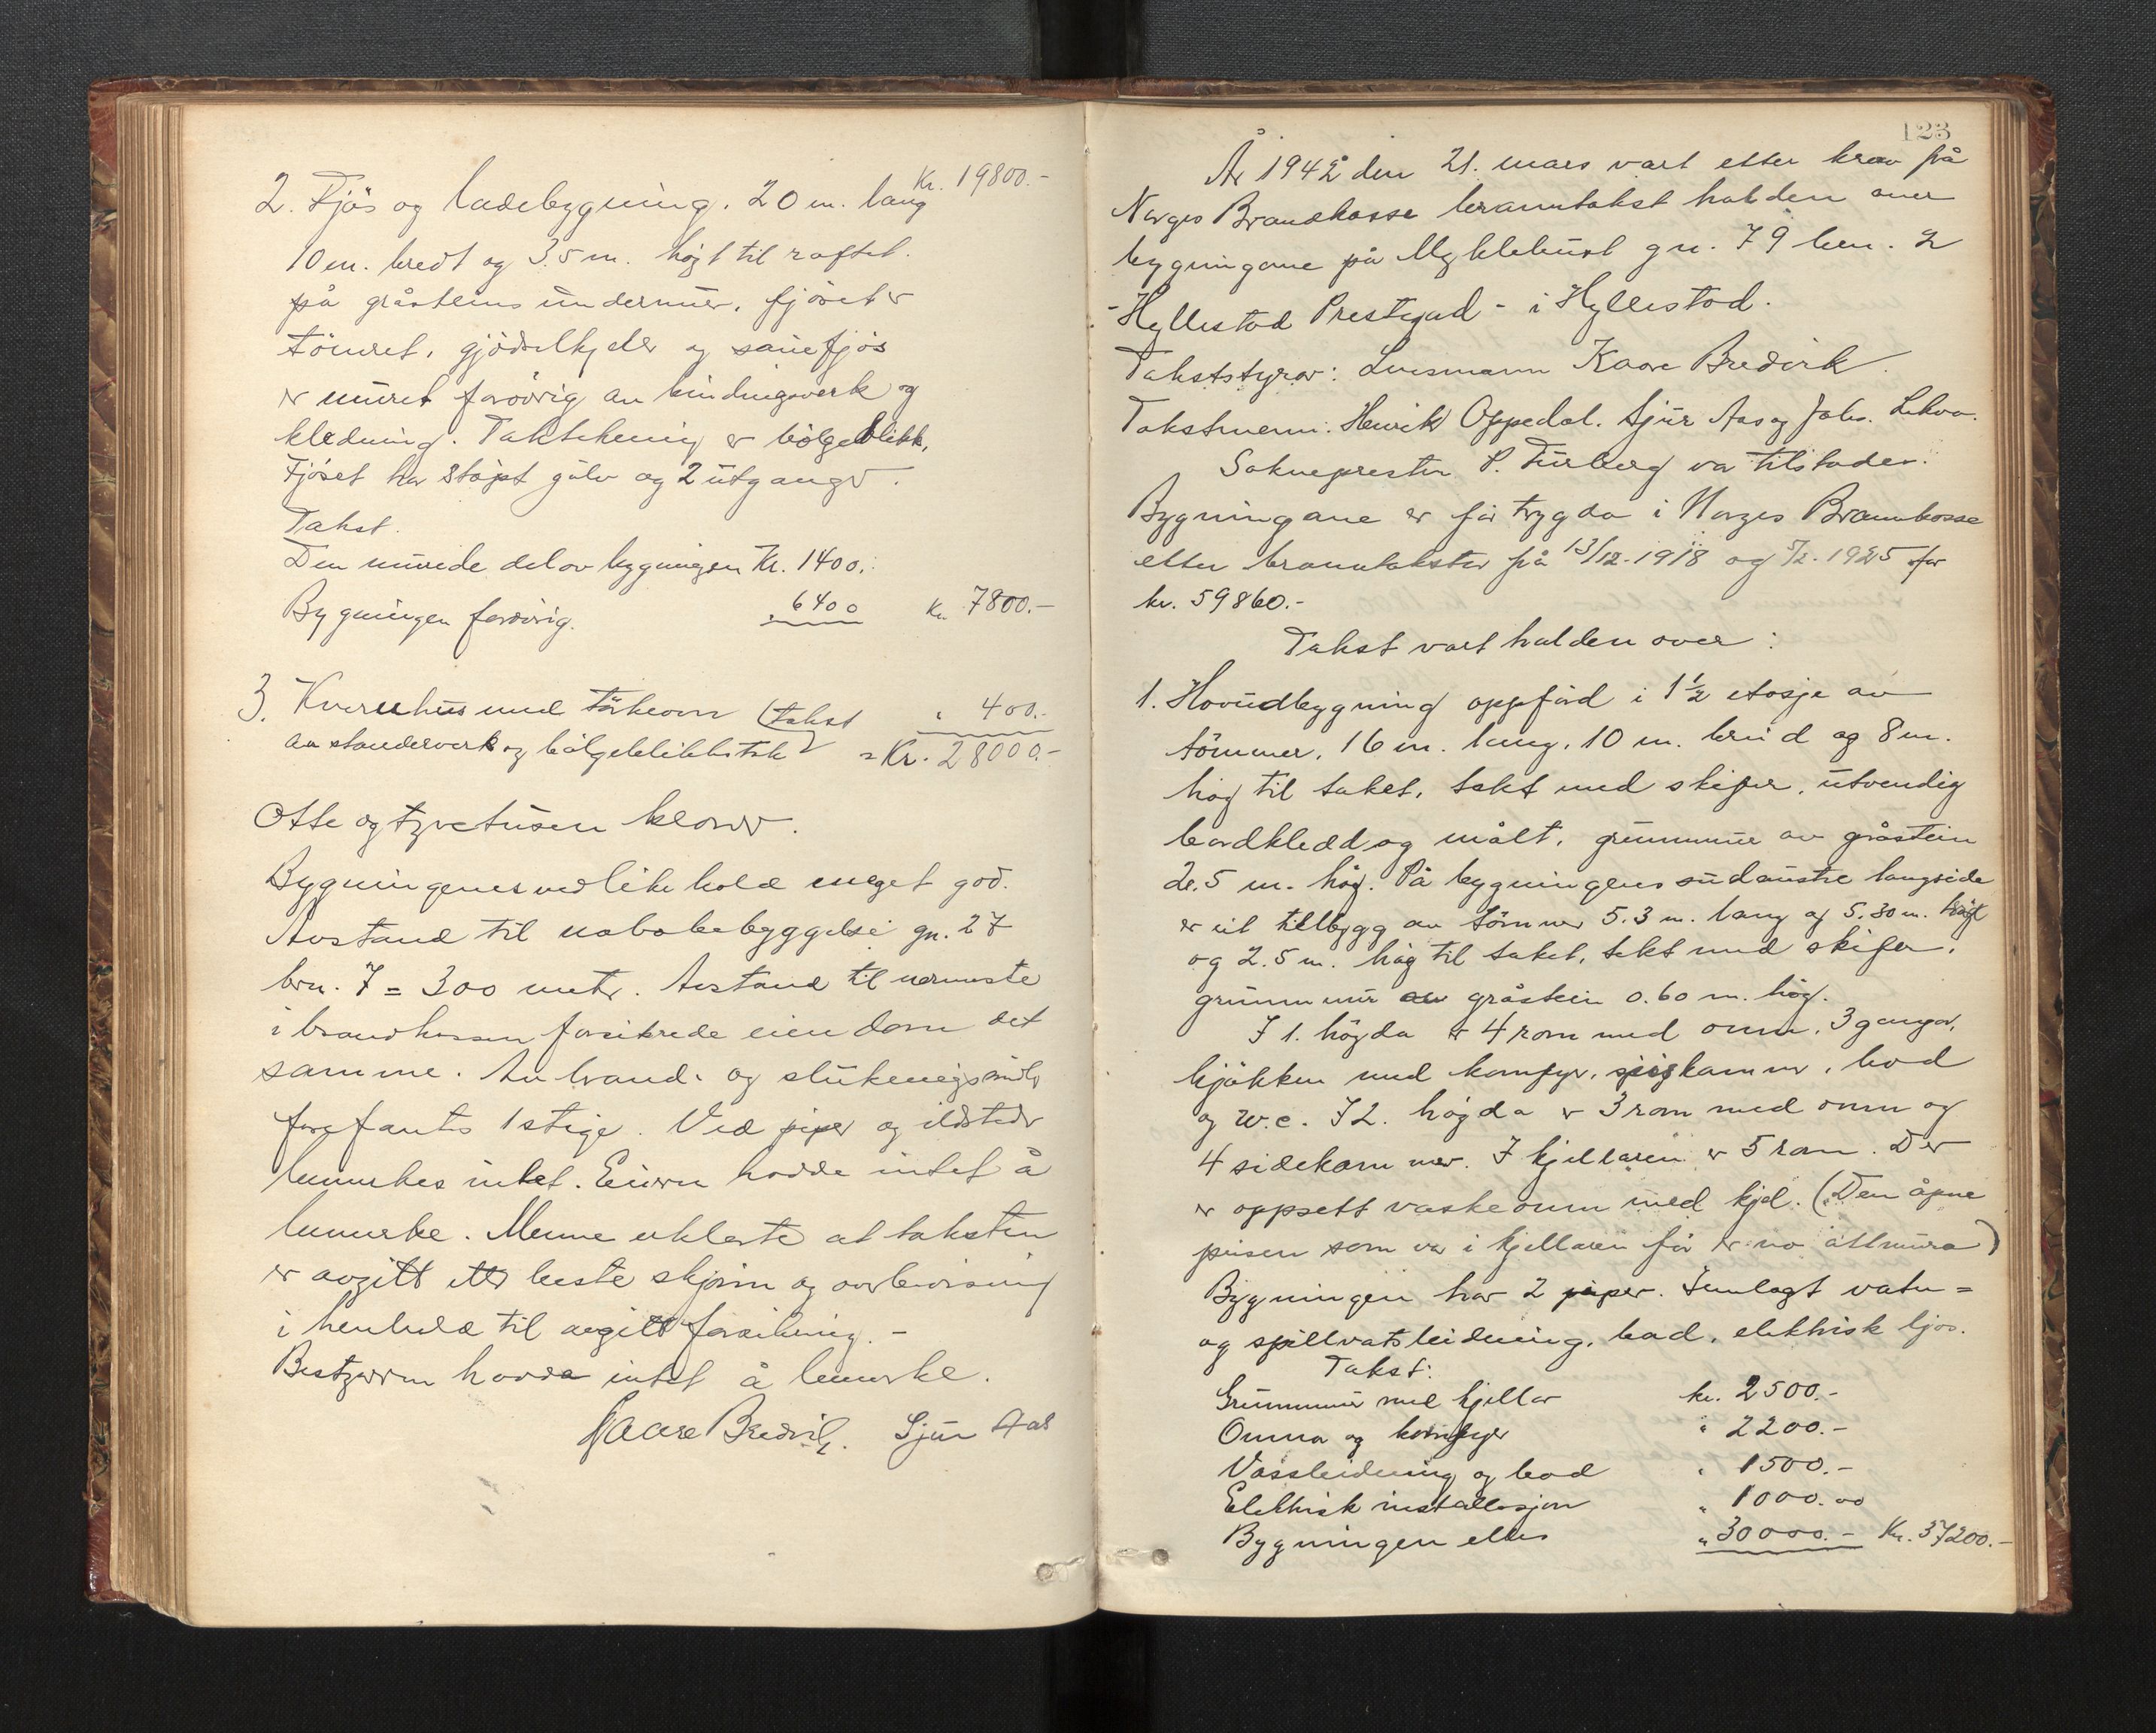 Kr. 19800.-
2. Fjös og ladebygning. 20 m. lang
10 m. bredt og 3.5 m. högt til raftet.
på gråsteins undermur, fjöset er
tömret, gjödselkjeler og sauefjös
er muret forövrig av bindingsverk og
kledning. Taktekning er bölgeblikk,
Fjöset har stöpt gulv og 2 utganger.
Takst.
Den murede del av bygningen Kr. 1400.-
Bygningen forövrig. 6400 Kr. 7800.-
3. Kvernhus med törkeovn (takst " 400.-
av standerverk og bölgeblikktak) = Kr. 28000.-
Otte og tyvetusen kroner.
Bygningenes vedlikehold meget god.
Avstand til nabobebyggelse gn. 27
brn. 7 = 300 meter. Avstand til nermeste
i brandkassen forsikrede eiendom det
samme. Av brand- og slukningsmidler
forefantes 1 stige. Ved piper og ildsteder
bemerkes intet. Eieren hadde intet å
bemerke. Mennene erklerte at taksten
er avgitt etter beste skjönn og overbevisning
i henhold til avgitt forsikring.-
Bestyreren hadde intet å bemerke.
Kaare Bredvik. Sjur Aas
123
År 1942 den 21. mars vart etter krav på
Norges Brandkasse branntakst halden over
bygningane på Myklebust gn. 79 brn. 2
- Hyllestad Prestegard - i Hyllestad.
Takststyrar: Lensmann Kaare Bredvik.
Takstmenn: Henrik Oppedal. Sjur Aas og Johs. Lekva.
Sokneprester P. Furberg var tilstades.
Bygningane er för trygda i Norges Brannkasse
etter branntakster på 13/12-1918 og 5/2-1925 for
kr. 59860.-
Takst vart halden over:
1. Hovudbygning oppförd i 1½ etasje av
tömmer, 16 m. lang, 10 m. breid og 8 m.
hög til taket, tekt med skifer, utvendig
bordkledd og målt, grunnmur av gråstein
2.5 m. hög. På bygningens sudaustre langside
er eit tillbygg av tömmer 5.3 m. lang og 5.30 m.
og 2.5 m. hög til taket, tekt med skifer,
grunnmur av gråstein 0.60 m. hög.
I 1. högda er 4 rom med omn, 3 ganger,
kjökken med komfyr, spiskammer, bod
og w.c. I 2. högda er 3 rom med omn og
4 sidekammer. I kjellaren er 5 rom. Der
er oppsett vaskeomn med kjel. (Den åpne
peisen som var i kjellaren för er no attmura)
Bygningen har 2 piper. Innlagt vatn=
og spillvatsleidning, bad, elektrisk ljos.
Takst:
Grunnmur med kjellar kr. 2500.-
Omna og komfyr " 2200.-
Vassleidning og bad " 1500.-
Elektrisk installasjon " 1000.00
Bygningen elles " 30000.- Kr. 37200.-